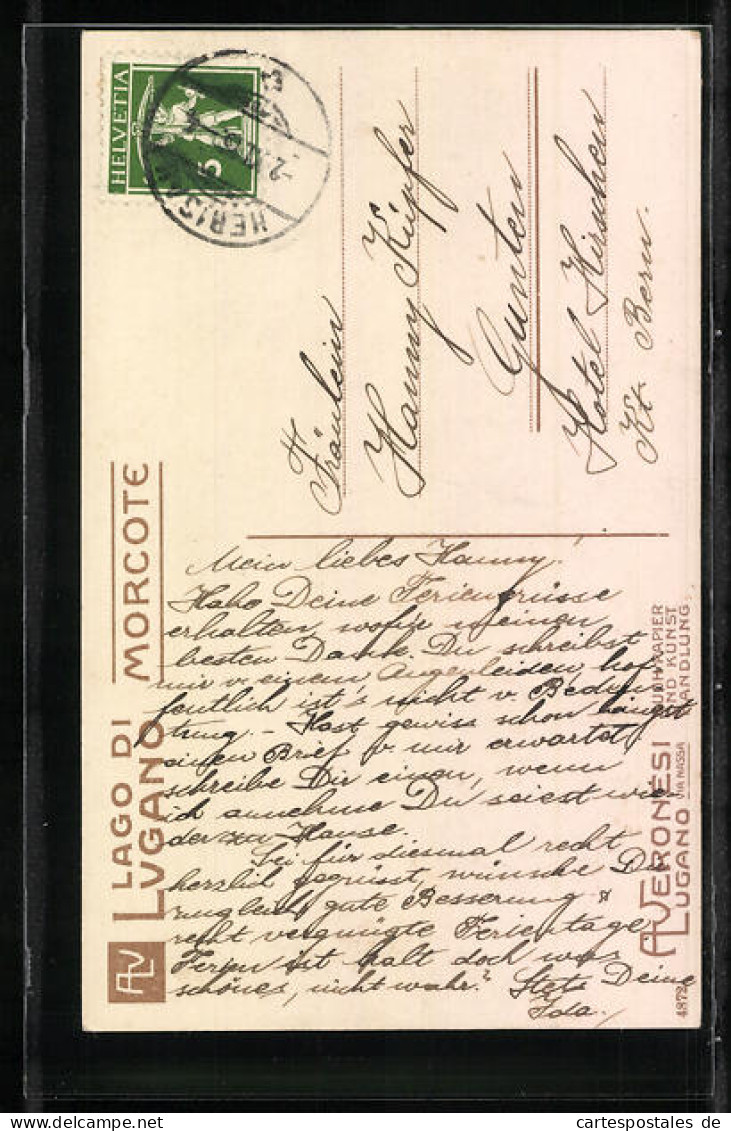 HELVETIA
5
HERISAU
LAGO DI
LUGANO
MORCOTE
ALV
Fräulein
Hanny Küpfer
Gunten
Hotel Hirschen
Kt. Bern.
Mein liebes Hanny!
Habe Deine Feriengrüsse
erhalten, wofür meinen
besten Dank. Du schreibst
mir v. einem Augenleiden, hof
fentlich ist's nicht v. Bedeu
tung. – Hast gewiss schon längst
einen Brief v. mir erwartet,
schreibe Dir einen, wenn
ich annehme Du seiest wie
der zu Hause.
Sei für diesmal recht
herzlich gegrüsst, wünsche Dir
zugleich gute Besserung &
recht vergnügte Ferientage.
Ferien ist halt doch was
schönes, nicht wahr? Stets Deine
Ida.
A. VERONESI
LUGANO VIA NASSA
UND KUNST
HANDLUNG
4872
www.cartespostales.de